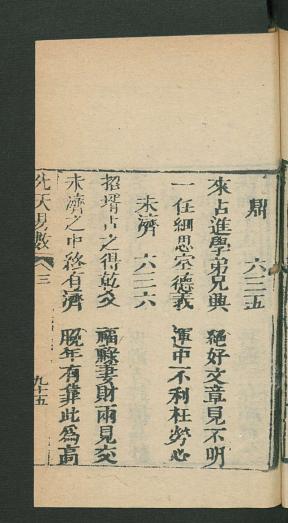 鼎 六三五
來占進學弟兄興 絕好文章見不明
一任細思室德義 運中不利枉勞心
未濟 六三六
招壻占之得乾爻 福祿妻財兩見交
未濟之中終有濟 晚年有靠此為高
先天易數 卷三 九十五